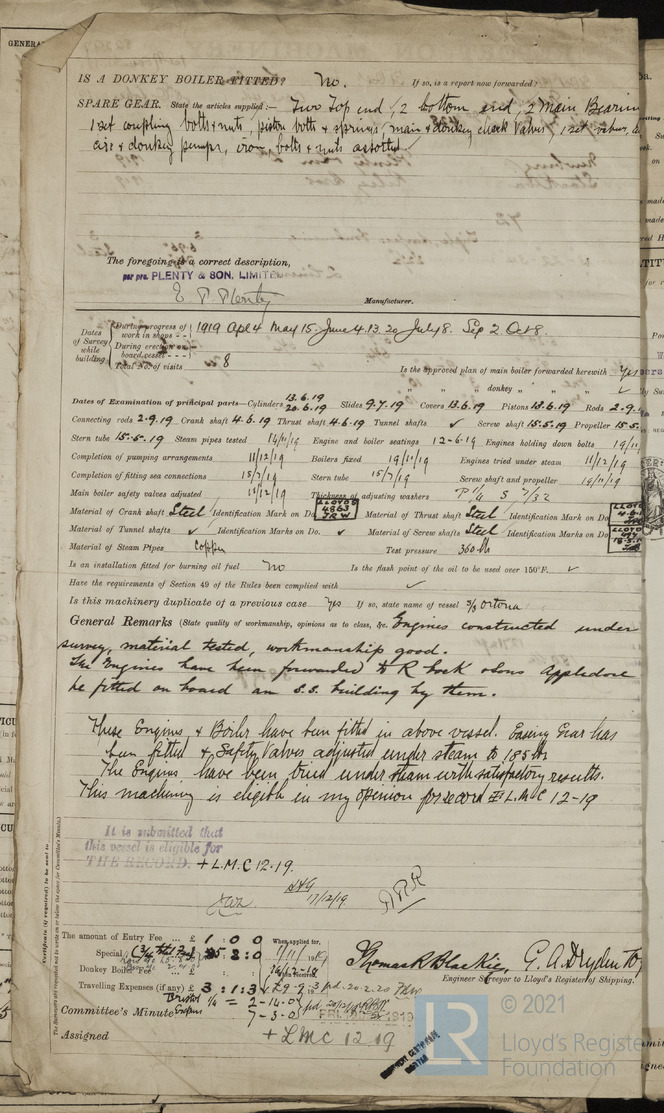 IS A DONKEY BOILER FITTED? No. If so, is a report now forwarded?
SPARE GEAR. State the articles supplied:— Two Top end, 2 bottom end, 2 Main Bearin
1 set coupling bolts & nuts, piston bolts & springs, main & donkey check valves, 1 set valves,
air & donkey pumps, iron, bolts & nuts assorted
The foregoing is a correct description,
per pro. PLENTY & SON, LIMITED
E P Plenty Manufacturer.
Dates of Survey while building
During progress of work in shops - - 1919 Apl 4 May 15. June 4. 13. 20 July 8. Sep 2. Oct 8.
During erection on board vessel - - -
Total No. of visits 8
Is the approved plan of main boiler forwarded herewith Yes
" " " donkey " " " ✓
Dates of Examination of principal parts—Cylinders 13.6.19 20.6.19 Slides 9.7.19 Covers 13.6.19 Pistons 13.6.19 Rods 2.9.1
Connecting rods 2.9.19 Crank shaft 4.6.19 Thrust shaft 4.6.19 Tunnel shafts ✓ Screw shaft 15.5.19 Propeller 15.5.
Stern tube 15.5.19 Steam pipes tested 14/11/19 Engine and boiler seatings 12-6-19 Engines holding down bolts 19/11
Completion of pumping arrangements 11/12/19 Boilers fixed 19/11/19 Engines tried under steam 11/12/19
Completion of fitting sea connections 15/7/19 Stern tube 15/7/19 Screw shaft and propeller 19/11/19
Main boiler safety valves adjusted 11/12/19 Thickness of adjusting washers P 1/4 S 7/32
Material of Crank shaft Steel Identification Mark on Do. LLOYDS 4863 JRW Material of Thrust shaft Steel Identification Mark on Do LLOYD 4.6.1
Material of Tunnel shafts ✓ Identification Marks on Do. ✓ Material of Screw shafts Steel Identification Marks on Do. LLOYD
Material of Steam Pipes Copper Test pressure 360 lb
Is an installation fitted for burning oil fuel No Is the flash point of the oil to be used over 150°F. ✓
Have the requirements of Section 49 of the Rules been complied with ✓
Is this machinery duplicate of a previous case Yes If so, state name of vessel S/S Ortona
General Remarks (State quality of workmanship, opinions as to class, &c. Engines constructed under
survey, material tested, workmanship good.
The Engines have been forwarded to R Cock & Sons Appledore
be fitted on board an S.S. building by them.
These Engines & Boiler have been fitted in above vessel. Easing Gear has
been fitted & Safety Valves adjusted under steam to 185 lbs
The Engines have been tried under steam with satisfactory results.
This machinery is eligible in my opinion for record + L.M.C 12-19
It is submitted that
this vessel is eligible for
THE RECORD. + L.M.C 12.19.
17/12/19
The amount of Entry Fee ... £ 1 : 0 : 0 When applied for,
Special 5 : 2 : 0 7/11/19
Donkey Boiler Fee
Travelling Expenses (if any) £ 3 : 1 : 3 pd. 20.2.20
Bristol 1/4 = 2-14-0
7-3-0
Thomas R Blackie, G. A. Dryden
Engineer Surveyor to Lloyd's Register of Shipping.
Committee's Minute
Assigned + LMC 12 19
© 2021
Lloyd's Registe
Foundation